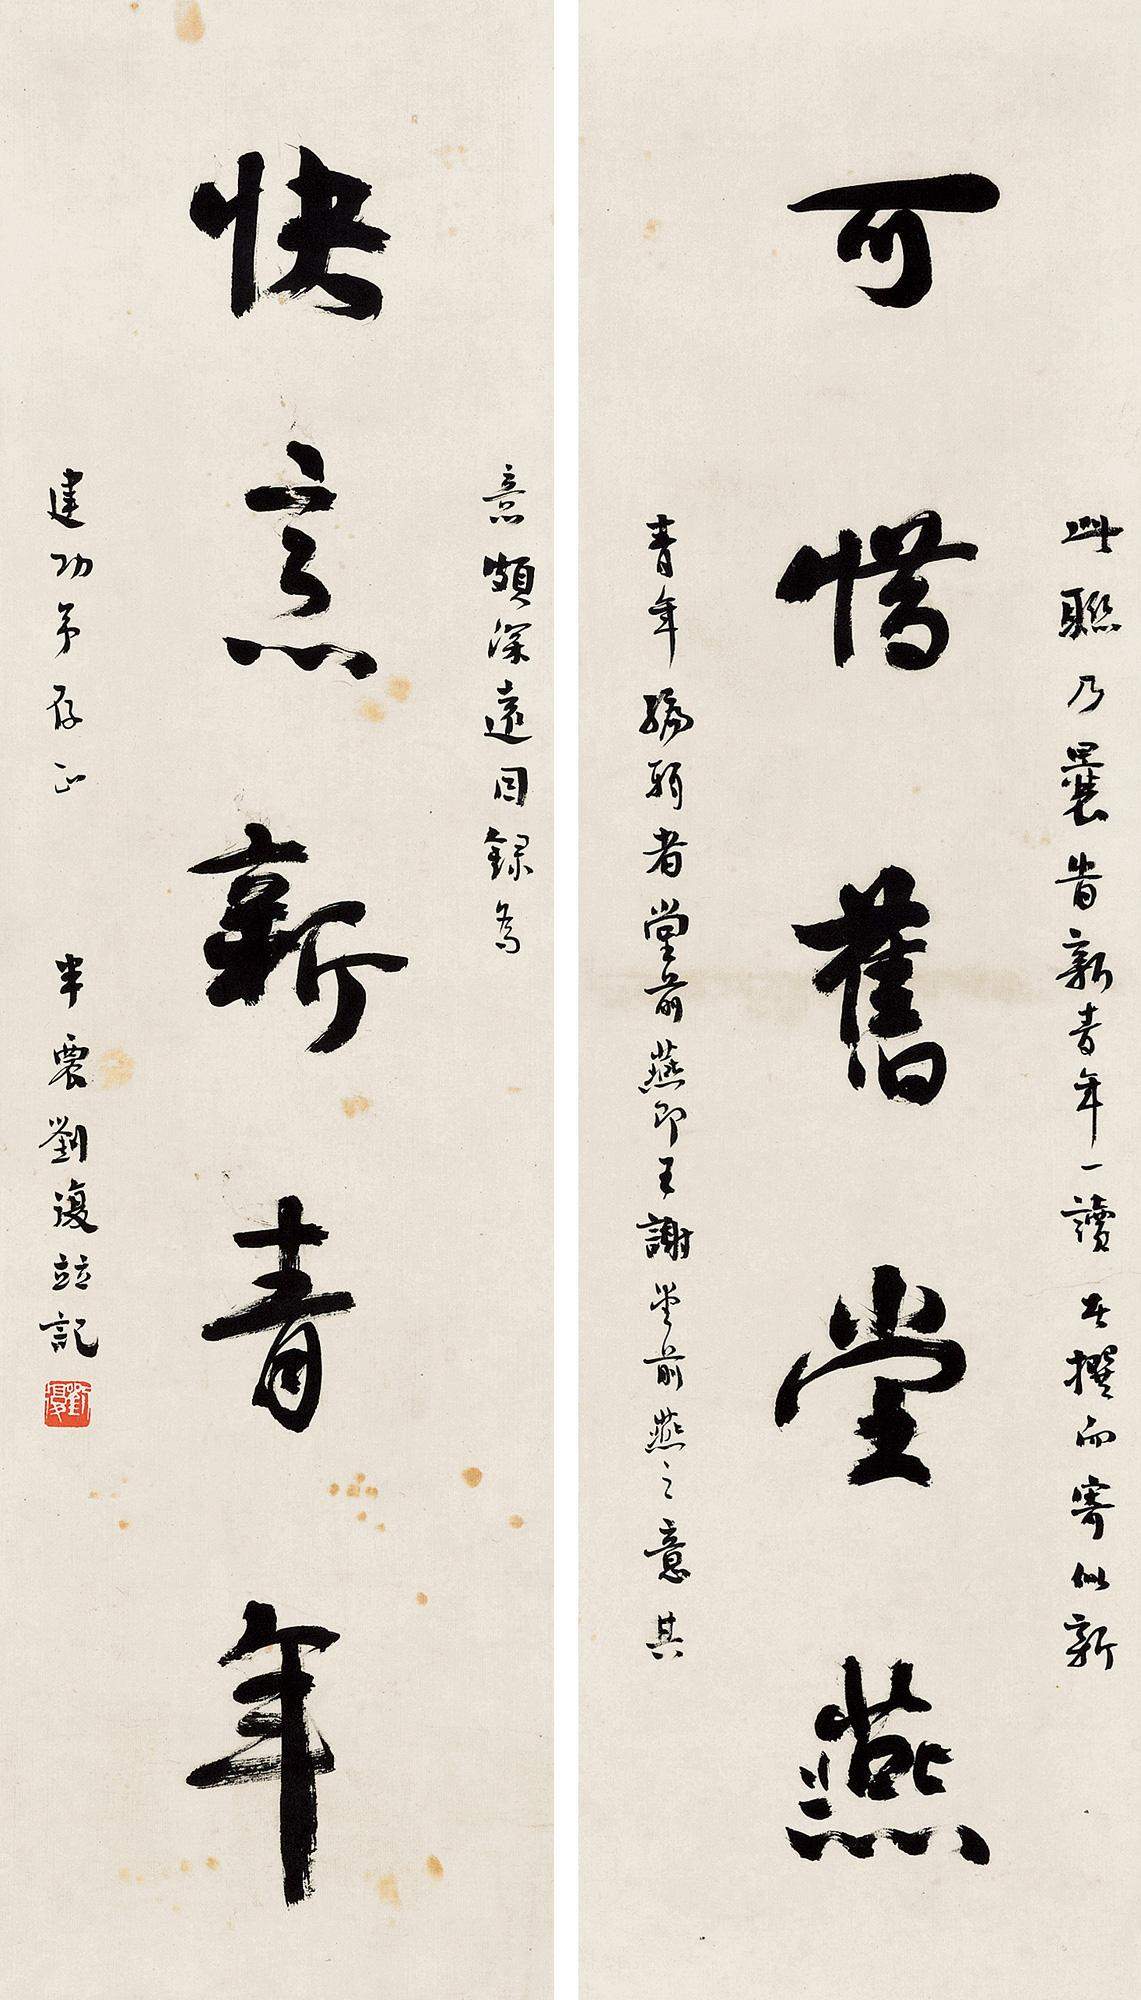 此聯乃曩昔新青年一讀者撰而寄似新
可惜舊堂燕
青年編輯者堂前燕即王謝堂前燕之意其
意頗深遠因錄為
快意新青年
建功弟存正 半農劉復並記
劉復